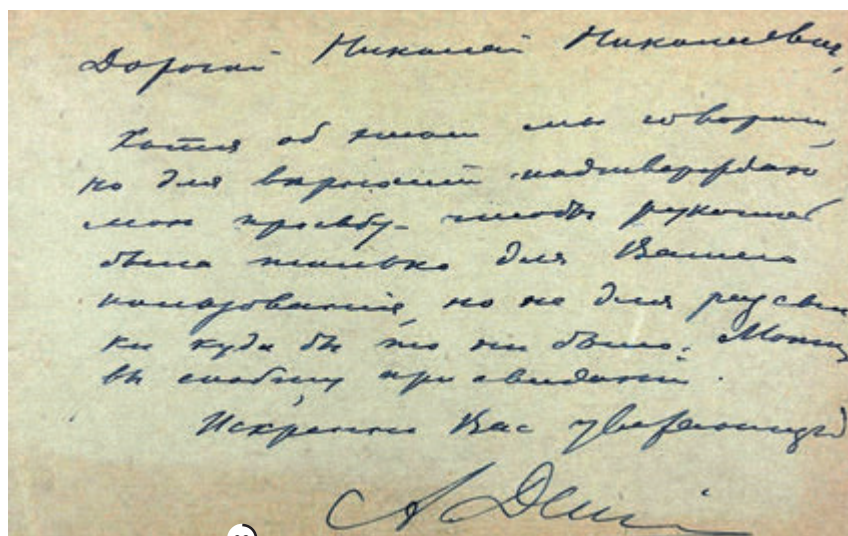 Дорогой Николай Николаевич,
Хотя об этом мы говорили,
но для верности подтверждаю
мою просьбу чтобы рукопись
была только для Вашего
пользования, но не для рассыл
ки куда бы то ни было.
вы при свидании.
Искренно Вас уважающий
А. Дени